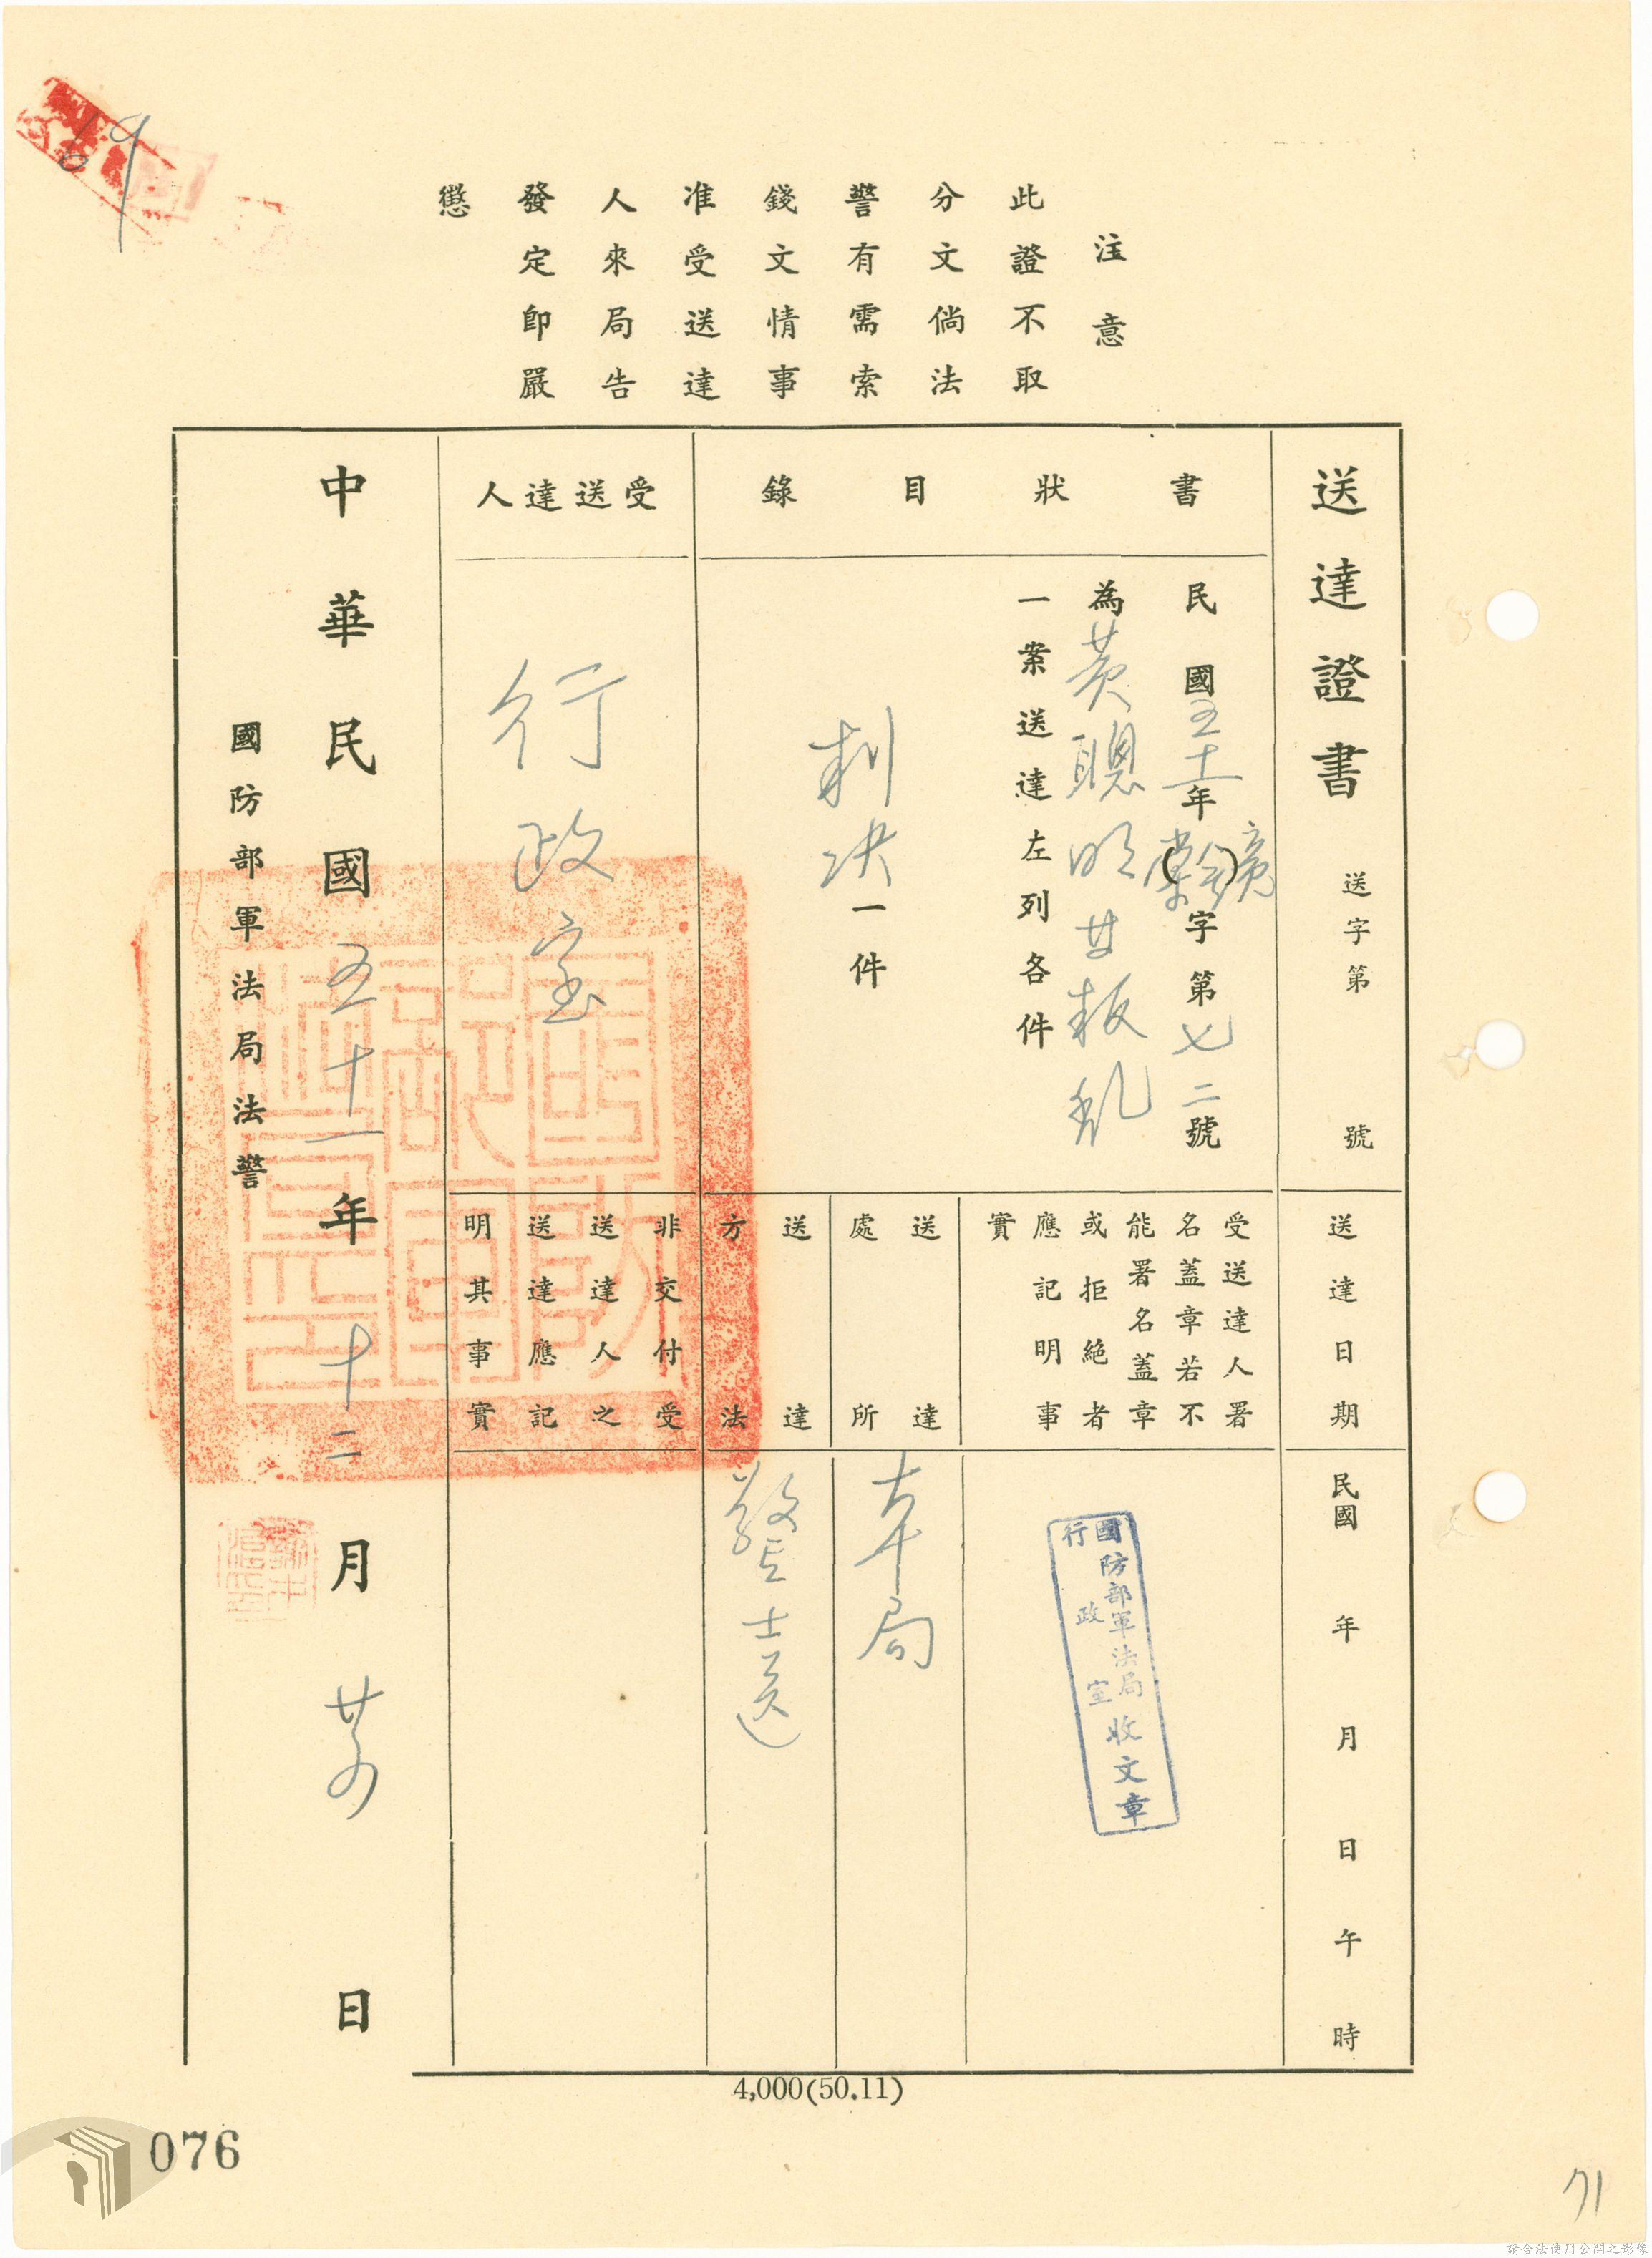 69
注意
此證不取
分文倘法
警有需索
錢文情事
准受送達
人來局告
發定即嚴
懲
送達證書 送字第 號
書狀目錄
民國五十一年()字第七二號
為黃聰明廿叛乱
一案送達左列各件
判决一件
受送達人
行政室
送達日期
民國 年 月 日 午 時
受送達人署
名蓋章若不
能署名蓋章
或拒絕者
應記明事
實
國防部軍法局
行政室
收文章
送達
處所
本局
送達
方法
警士送
非交付受
送達人之
送達應記
明其事實
中華民國五十一年十二月廿 日
國防部軍法局法警
4,000(50.11)
076
71
請合法使用公開之影像